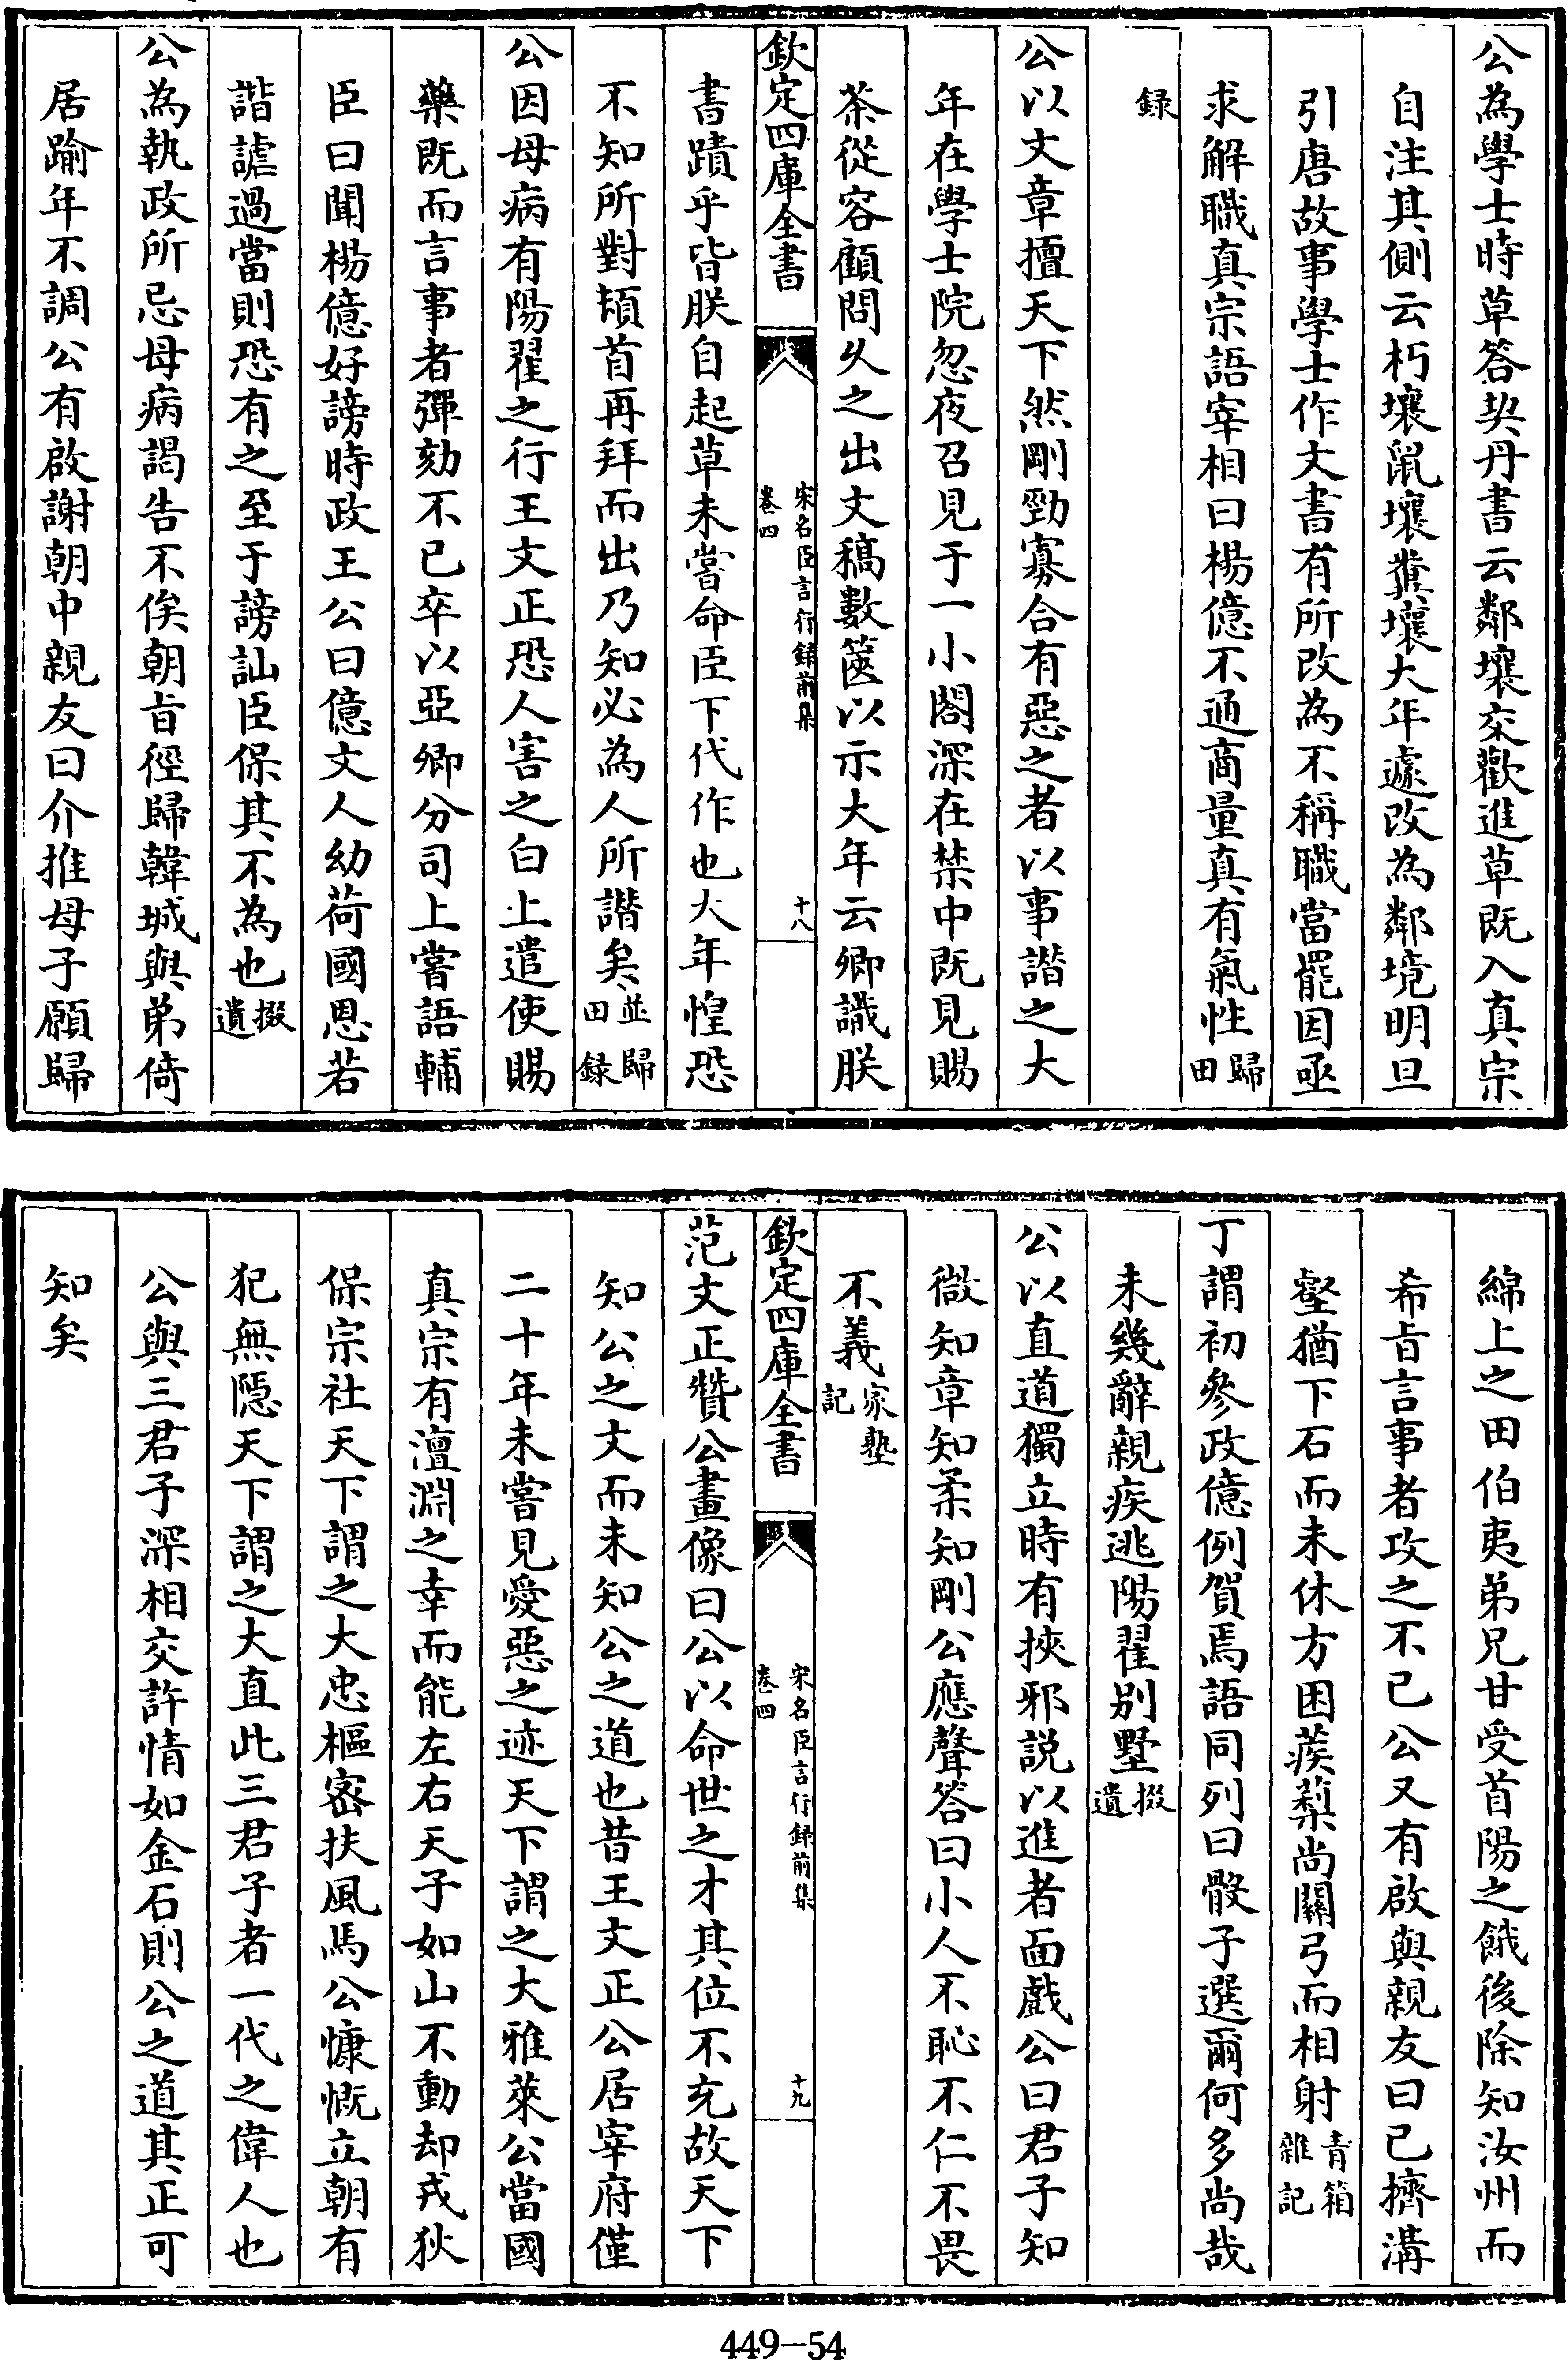 公為學士時草答契丹書云鄰壤交歡進草既入真宗
自注其側云朽壤鼠壤糞壤大年遽改為鄰境明旦
引唐故事學士作文書有所改為不稱職當罷因亟
求解職真宗語宰相曰楊億不通商量真有氣性歸田
録
公以文章擅天下然剛勁寡合有惡之者以事譖之大
年在學士院忽夜召見于一小閤深在禁中既見賜
茶從容顧問久之出文稿數篋以示大年云卿識朕
欽定四庫全書 宋名臣言行録前集 卷四 十八
書蹟乎皆朕自起草未嘗命臣下代作也大年惶恐
不知所對頓首再拜而出乃知必為人所譖矣並歸田録
公因母病有陽翟之行王文正恐人害之白上遣使賜
藥既而言事者彈劾不已卒以亞卿分司上嘗語輔
臣曰聞楊億好謗時政王公曰億文人幼荷國恩若
諧謔過當則恐有之至于謗訕臣保其不為也掇遺
公為執政所忌母病謁告不俟朝旨徑歸韓城與弟倚
居踰年不調公有啟謝朝中親友曰介推母子願歸
綿上之田伯夷弟兄甘受首陽之餓後除知汝州而
希旨言事者攻之不已公又有啟與親友曰已擠溝
壑猶下石而未休方困蒺藜尚關弓而相射青箱雜記
丁謂初參政億例賀焉語同列曰骰子選爾何多尚哉
未幾辭親疾逃陽翟別墅掇遺
公以直道獨立時有挾邪説以進者面戲公曰君子知
微知章知柔知剛公應聲答曰小人不恥不仁不畏
不義家塾記
欽定四庫全書 宋名臣言行録前集 卷四 十九
范文正贊公畫像曰公以命世之才其位不充故天下
知公之文而未知公之道也昔王文正公居宰府僅
二十年未嘗見愛惡之迹天下謂之大雅萊公當國
真宗有澶淵之幸而能左右天子如山不動却戎狄
保宗社天下謂之大忠樞密扶風馬公慷慨立朝有
犯無隱天下謂之大直此三君子者一代之偉人也
公與三君子深相交許情如金石則公之道其正可
知矣
449-54